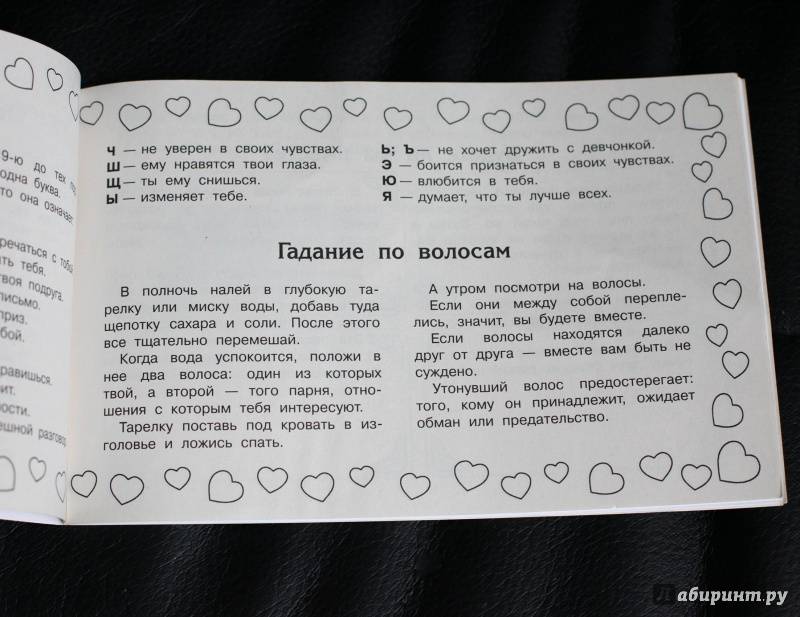 9-ю до тех
одна буква.
то она означает
речаться с тобой
ть тебя.
твоя подруга.
письмо.
приз.
бой.
равишься.
ит.
ости.
ешной разговор
Ч — не уверен в своих чувствах.
Ш — ему нравятся твои глаза.
Щ — ты ему снишься.
Ы — изменяет тебе.
Ь; Ъ — не хочет дружить с девчонкой.
Э — боится признаться в своих чувствах.
Ю — влюбится в тебя.
Я — думает, что ты лучше всех.
Гадание по волосам
В полночь налей в глубокую та-
релку или миску воды, добавь туда
щепотку сахара и соли. После этого
все тщательно перемешай.
Когда вода успокоится, положи в
нее два волоса: один из которых
твой, а второй — того парня, отно-
шения с которым тебя интересуют.
Тарелку поставь под кровать в из-
головье и ложись спать.
А утром посмотри на волосы.
Если они между собой перепле-
лись, значит, вы будете вместе.
Если волосы находятся далеко
друг от друга — вместе вам быть не
суждено.
Утонувший волос предостерегает:
того, кому он принадлежит, ожидает
обман или предательство.
Лабиринт.ру